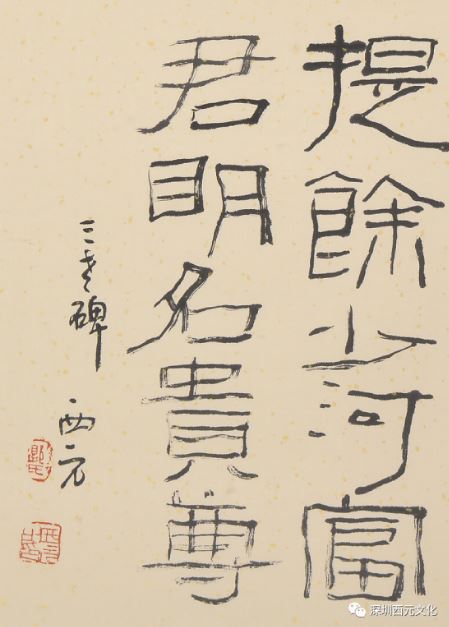 提餘少河富
君明名貴尊
三老碑
西元
深圳西元文化